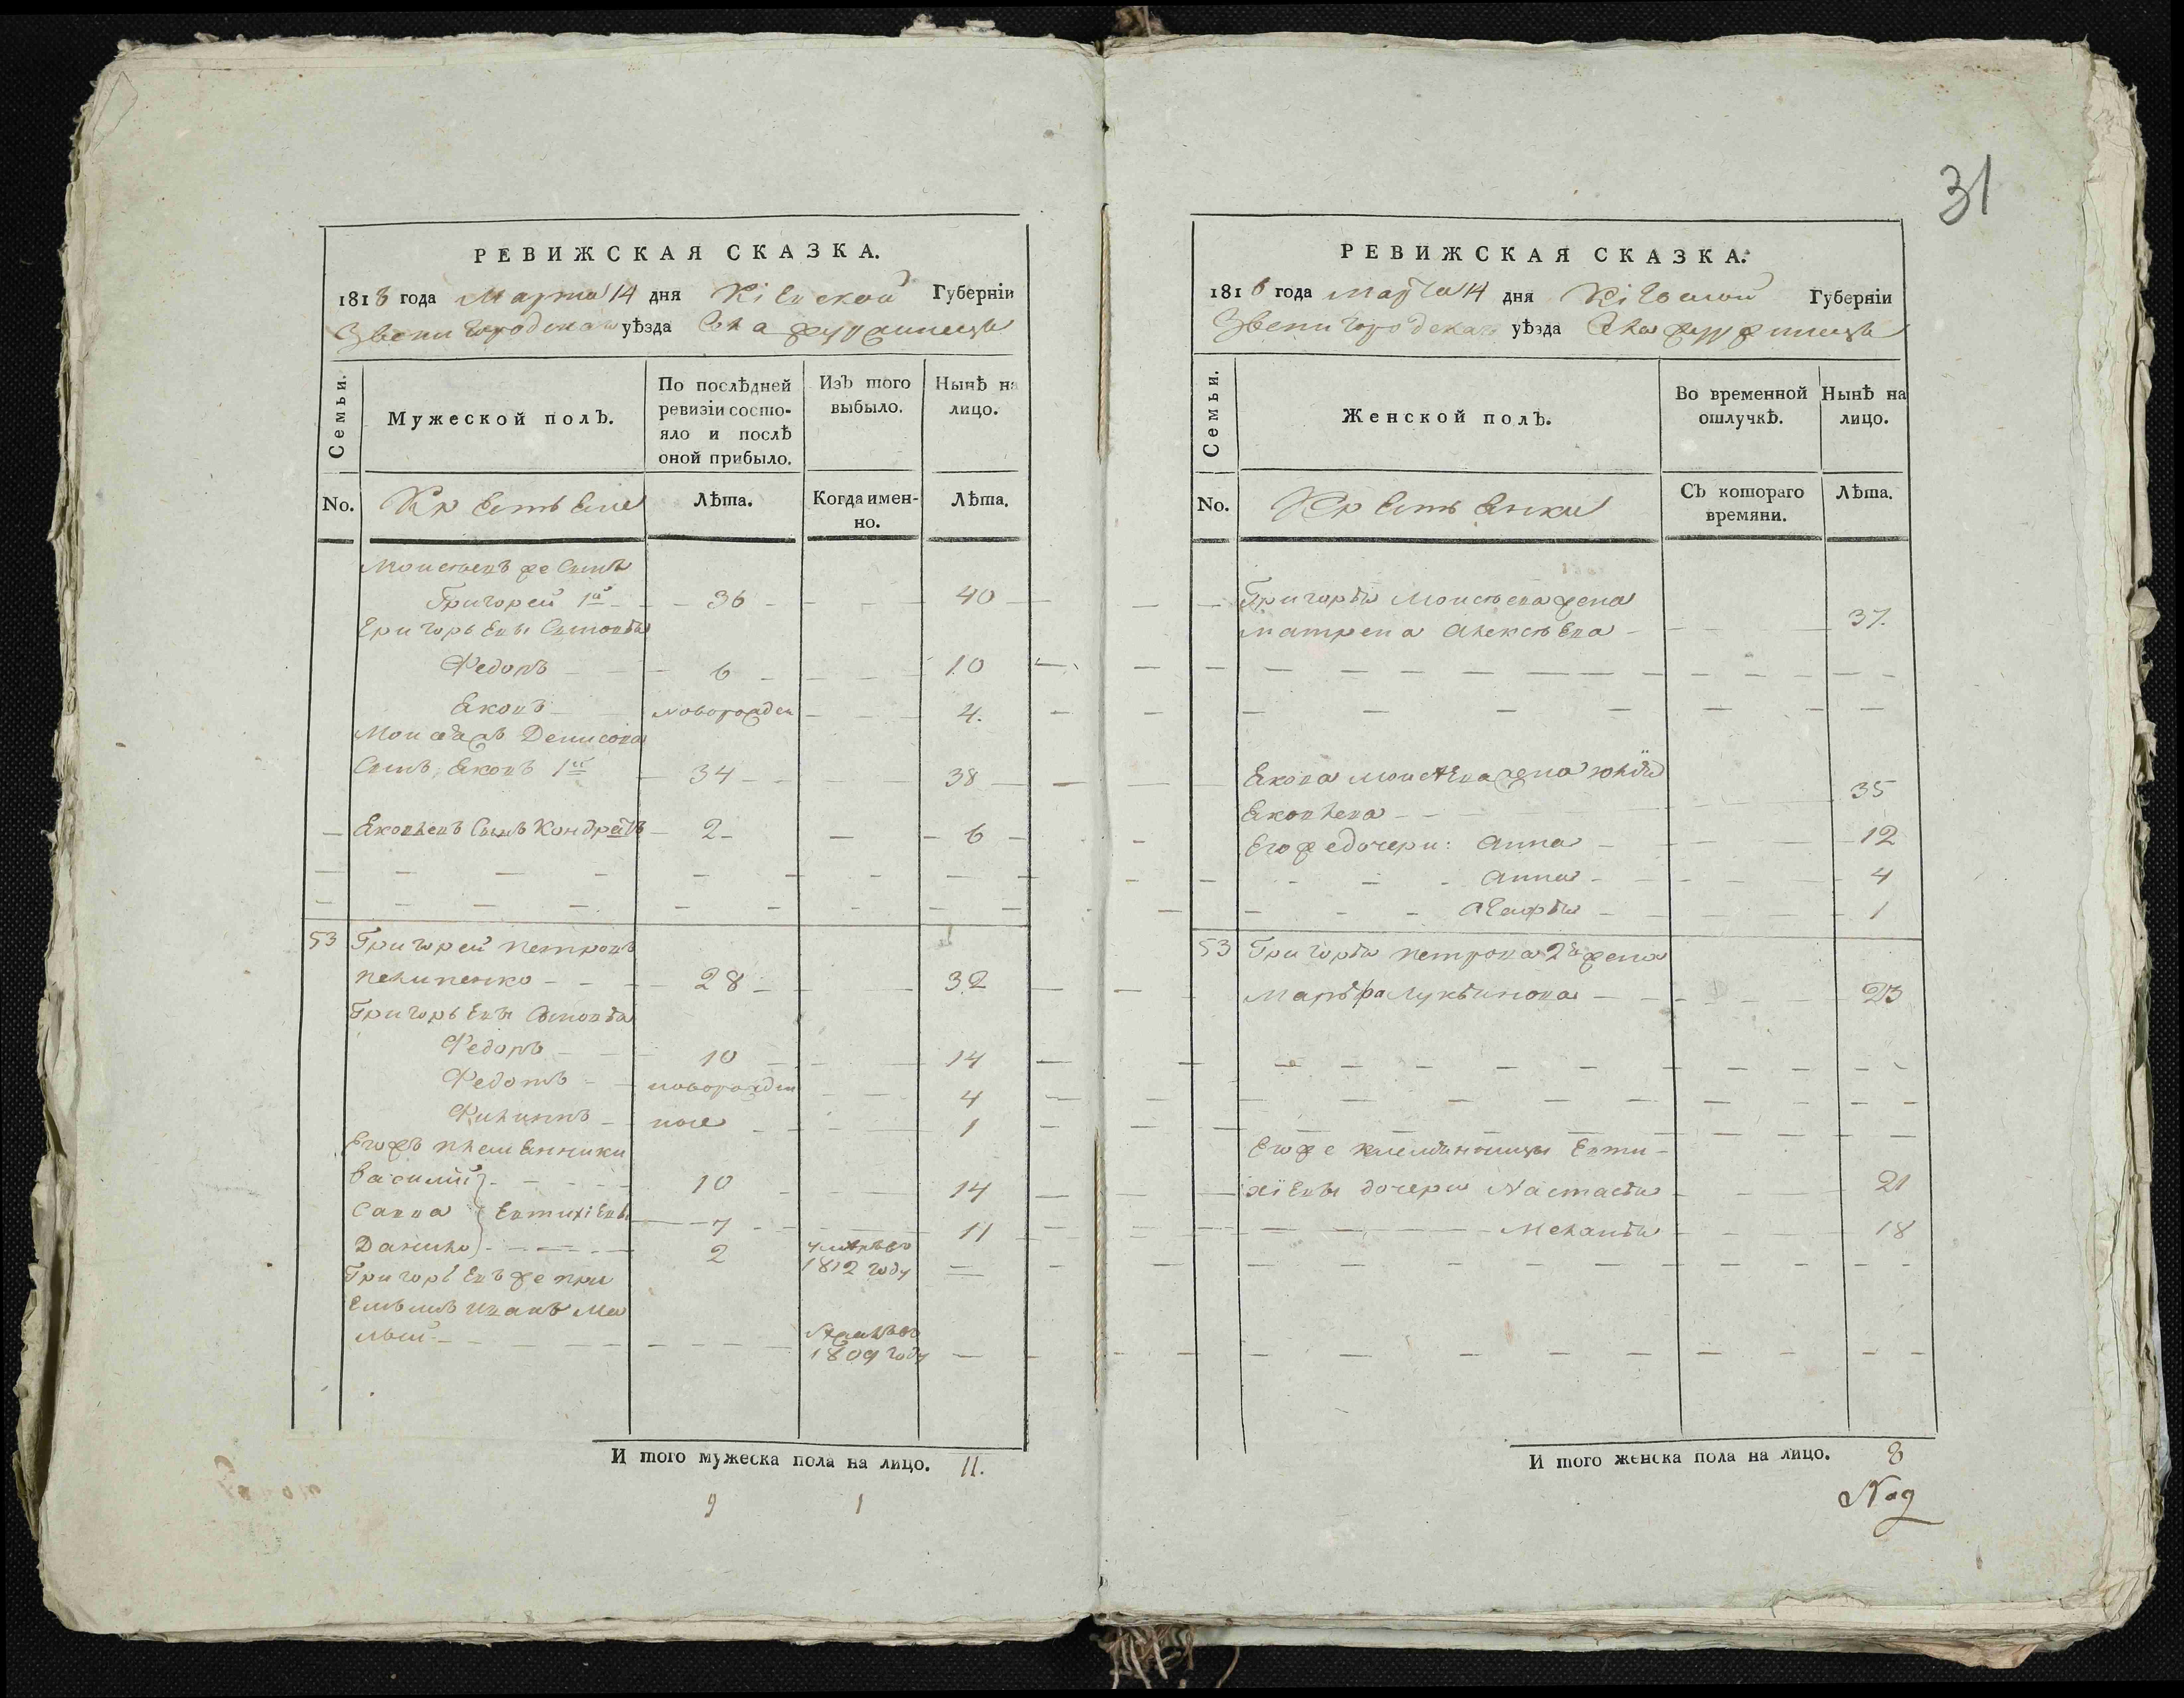 31
РЕВИЖСКАЯ СКАЗКА.
1816 года Марта 14 дня Кіевской Губерніи
Звенигородскаго уѣзда Села
Семьи.
Мужеской полЪ.
По послѣдней ревизіи состояло и послѣ оной прибыло.
ИзЪ того выбыло.
Нынѣ на лицо.
No.
Крестьяне
Лѣта.
Когда именно.
Лѣта.
Моисеевъ же Сынъ
Григорей 1й 36 40
Григорьевы Сыновья
Федоръ 6 10
Яковъ новорожден 4.
Моисея Денисова
Сынъ, Яковъ 1й 34 38
Яковлевъ Сынъ Кондратъ 2 6
53 Григорей Петровъ
Пелипенко 28 32
Григорьевы Сыновья
Федоръ 10 14
Федотъ новорожден 4
Филиппъ ное 1
Егожъ племянники
Василий 10 14
Савва Евтихіевы 7 11
Данило 2 умръ въ 1812 году
Григорьевъ же при
емышъ Иванъ Ма
лый 1809 году
И того мужеска пола на лицо. 11.
9 1
РЕВИЖСКАЯ СКАЗКА.
1816 года Марта 14 дня Кіевской Губерніи
Звенигородскаго уѣзда Села
Семьи.
Женской полЪ.
Во временной отлучкѣ.
Нынѣ на лицо.
No.
Крестьянки
СЪ котораго времяни.
Лѣта.
Григорья Моисеева жена
Матрена Алексѣева 37.
Якова Моисѣева жена Юлья
Яковлева 35
Его же дочери: Анна 12
Анна 4
Агафья 1
53 Григорья Петрова 2я жена
Марьфа Лукьянова 23
Его же племянницы Евти-
хіевы дочери Настасья 21
Меланья 18
И того женска пола на лицо. 8